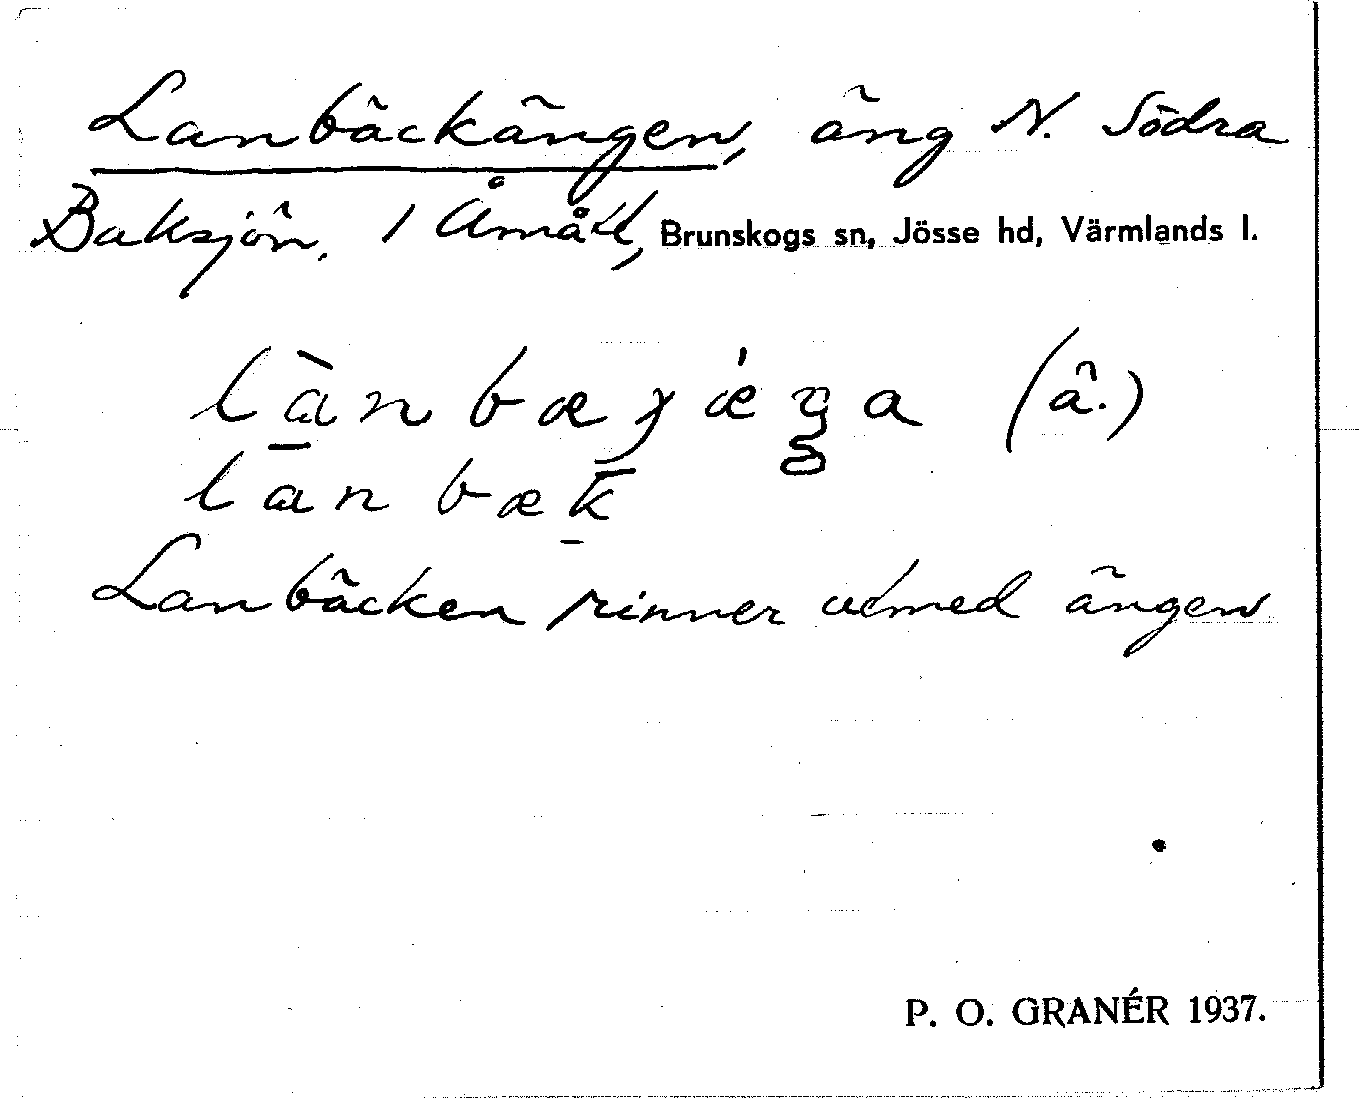 Lanbäckängen, äng N. Södra
Baksjön, 1 Åmått, Brunskogs sn, Jösse hd, Värmlands l.
lànbæ
lanbæk
Lanbäcken rinner utmed ängen
P. O. GRANÉR 1937.